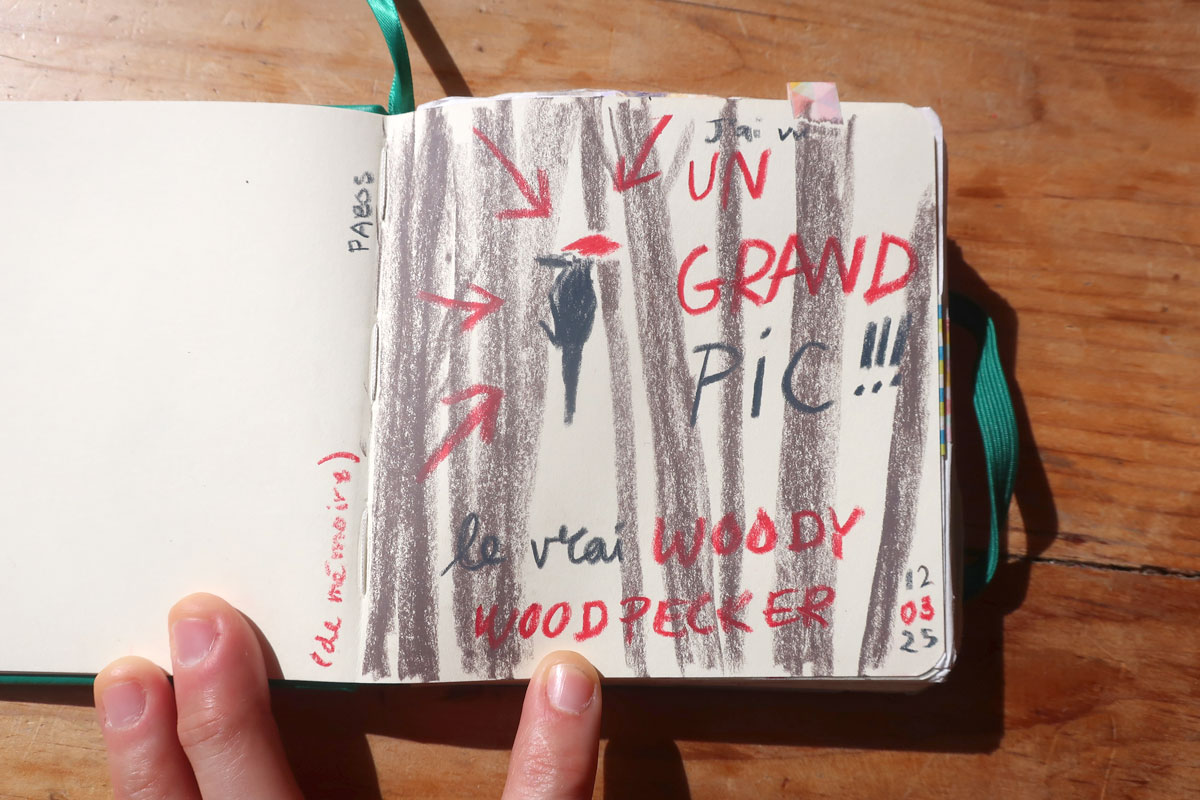 PABOS
(de mémoire)
J'ai vu
UN
GRAND
PiC !!!
le vrai WOODY
WOODPECKER
12
03
25